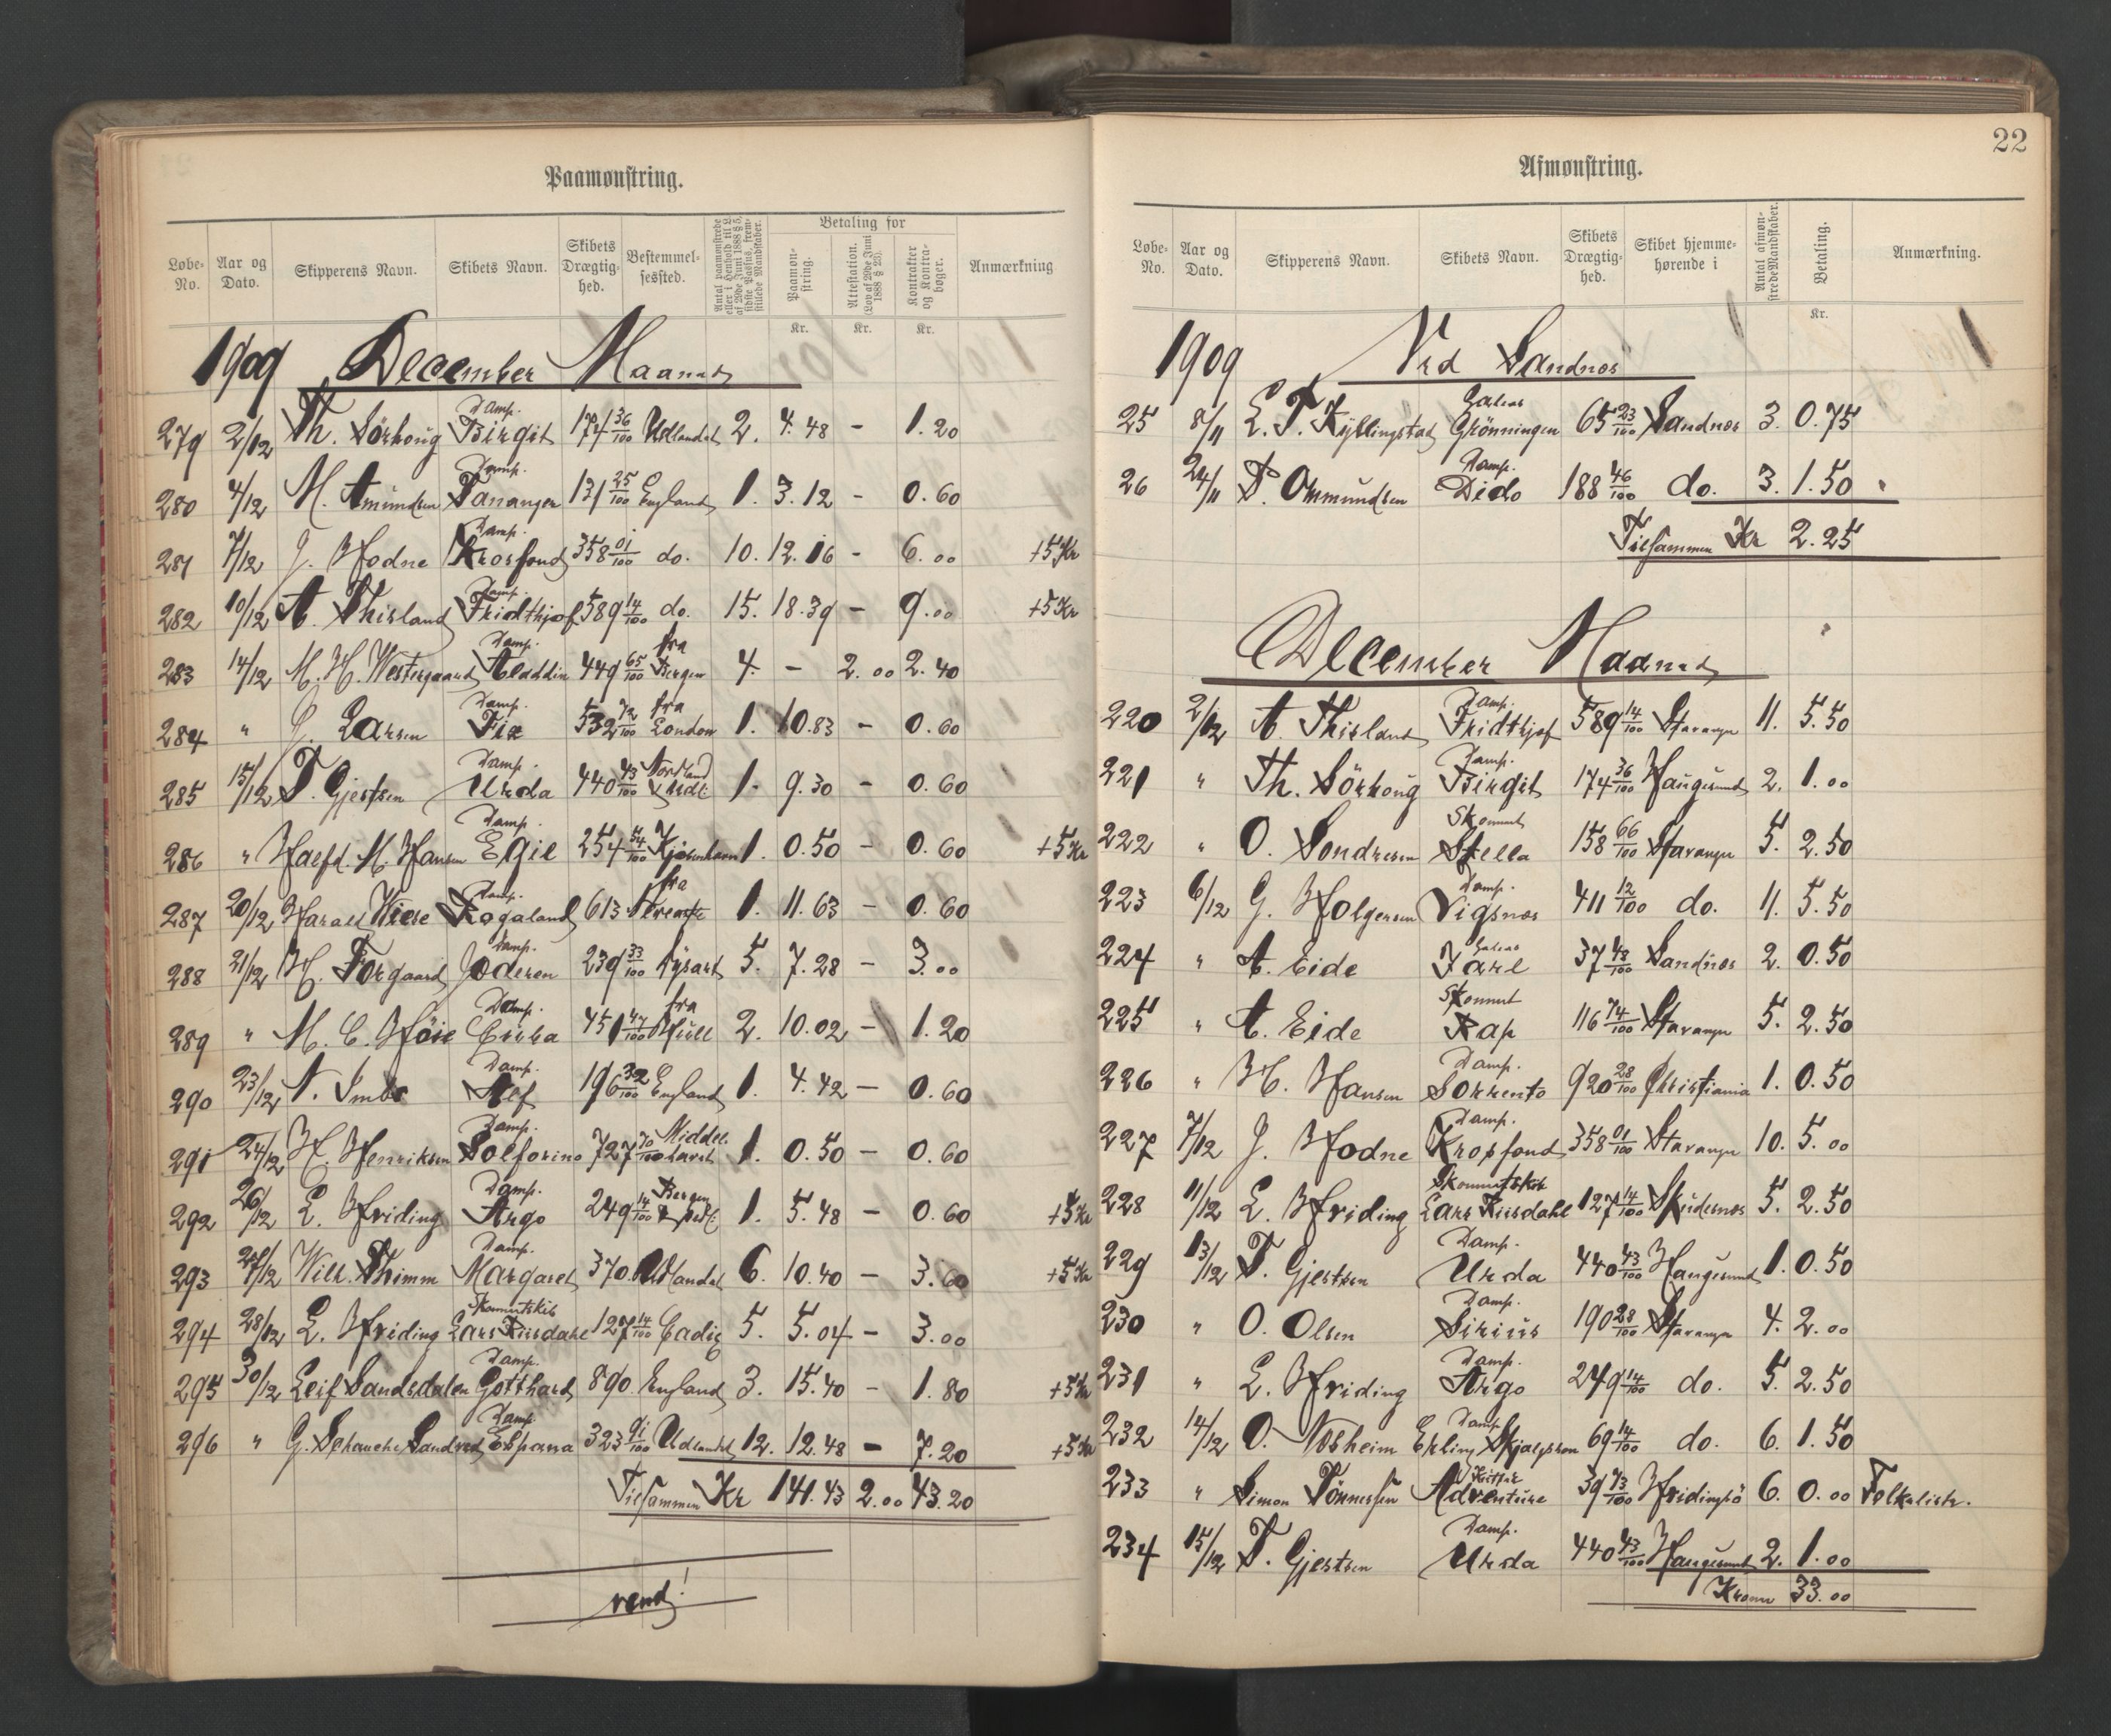 Paamønstring.
Løbe-No. Aar og Dato. Skipperens Navn. Skibets Navn. Skibets Drægtighed. Bestemmelsessted. Antal paamønstrede eller i Henhold til L. af 29de Juni 1888 § 5, sidste Passus, fremstillede Mandskaber. Betaling for Paamønstring. Attestation. (Lov af 29de Juni 1888 § 23). Kontrakter og Kontrabøger. Anmærkning
Kr. Kr. Kr.
1909 December Maaned
279 2/12 Th. Sörhoug Damp. Birgit 174 36/100 Udlandet 2. 4.48 – 1.20
280 4/12 M. Amundsen Damp. Tananger 131 25/100 England 1. 3.12 – 0.60
281 7/12 J. Hodne Damp. Krosfond 358 01/100 do. 10. 12.16 – 6.00 +5 Kr
282 10/12 A. Thisland Damp. Fridthjof 589 14/100 do. 15. 18.39 – 9.00 +5 Kr
283 14/12 M. H. Westergaard Damp. Aladdin 449 65/100 fra Bergen 4. – 2.00 2.40
284 " J. Larsen Damp. Fix 532 72/100 fra London 1. 10.83 – 0.60
285 15/12 T. Gjertsen Damp. Urda 440 43/100 Nordland 1. 9.30 – 0.60
286 " Halfd. M. Hansen Damp. Egil 254 54/100 Kjøbenhavn 1. 0.50 – 0.60 +5 Kr
287 20/12 Harald Wiese Damp. Rogaland 613 fra 1. 11.63 – 0.60
288 21/12 H. Torgaard Damp. Joderen 239 33/100 5. 7.28 – 3.00
289 " M. C. Höie Damp. Erika 451 47/100 fra Hull 2. 10.02 – 1.20
290 23/12 N. Damp. Alf 196 32/100 England 1. 4.42 – 0.60
291 24/12 H. Henriksen Damp. Solforino 727 70/100 Middelhavet 1. 0.50 – 0.60
292 26/12 L. Hviding Damp. Argo 249 14/100 Bergen 1. 5.48 – 0.60 +5 Kr
293 27/12 Wilh. Thimm Damp. Margaret 370 Udlandet 6. 10.40 – 3.60 +5 Kr
294 28/12 L. Hviding Skonnertskib Lars Riisdahl 127 14/100 Cadiz 5. 5.04 – 3.00
295 30/12 Leif Sandsdalen Damp. Gotthard 890 England 3. 15.40 – 1.80 +5 Kr
296 " G. Schanche Sandved Damp. España 323 91/100 Udlandet 12. 12.48 – 7.20 +5 Kr
Tilsammen Kr 141.43 2.00 43.20
vend!
22
Afmønstring.
Løbe-No. Aar og Dato. Skipperens Navn. Skibets Navn. Skibets Drægtighed. Skibet hjemmehørende i Antal afmønstrede Mandskaber. Betaling. Anmærkning.
Kr.
1909 Ved Sandnes
25 8/11 L. T. Kyllingstad Galeas Grönningen 65 23/100 Sandnes 3. 0.75
26 24/11 T. Ommundsen Damp. Dido 188 46/100 do. 3. 1.50
Tilsammen Kr 2.25
December Maaned
220 2/12 A. Thisland Damp. Fridthjof 589 14/100 Stavanger 11. 5.50
221 " Th. Sörhoug Damp. Birgit 174 36/100 Haugesund 2. 1.00
222 " O. Sondresen Skonnert Stella 158 66/100 Stavanger 5. 2.50
223 6/12 G. Holgersen Damp. Vigsnes 411 12/100 do. 11. 5.50
224 " A. Eide Galeas Jarl 37 48/100 Sandnes 2. 0.50
225 " A. Eide Skonnert Rap 116 74/100 Stavanger 5. 2.50
226 " H. Hansen Damp. Sorrento 920 28/100 Christiania 1. 0.50
227 7/12 J. Hodne Damp. Krosfond 358 01/100 Stavanger 10. 5.00
228 11/12 L. Hviding Skonnertskib Lars Riisdahl 127 14/100 Skudesnes 5. 2.50
229 13/12 T. Gjertsen Damp. Urda 440 43/100 Haugesund 1. 0.50
230 " O. Olsen Damp. Sirius 190 28/100 Stavanger 4. 2.00
231 " L. Hviding Damp. Argo 249 14/100 do. 5. 2.50
232 14/12 O. Nosheim Damp Erling Skjalgson 69 14/100 do. 6. 1.50
233 " Simon Tönnessen Kutter Adventure 39 73/100 Hvidingsö 6. 0.00 Folkeliste.
234 15/12 T. Gjertsen Damp. Urda 440 43/100 Haugesund 2. 1.00
Kroner 33.00